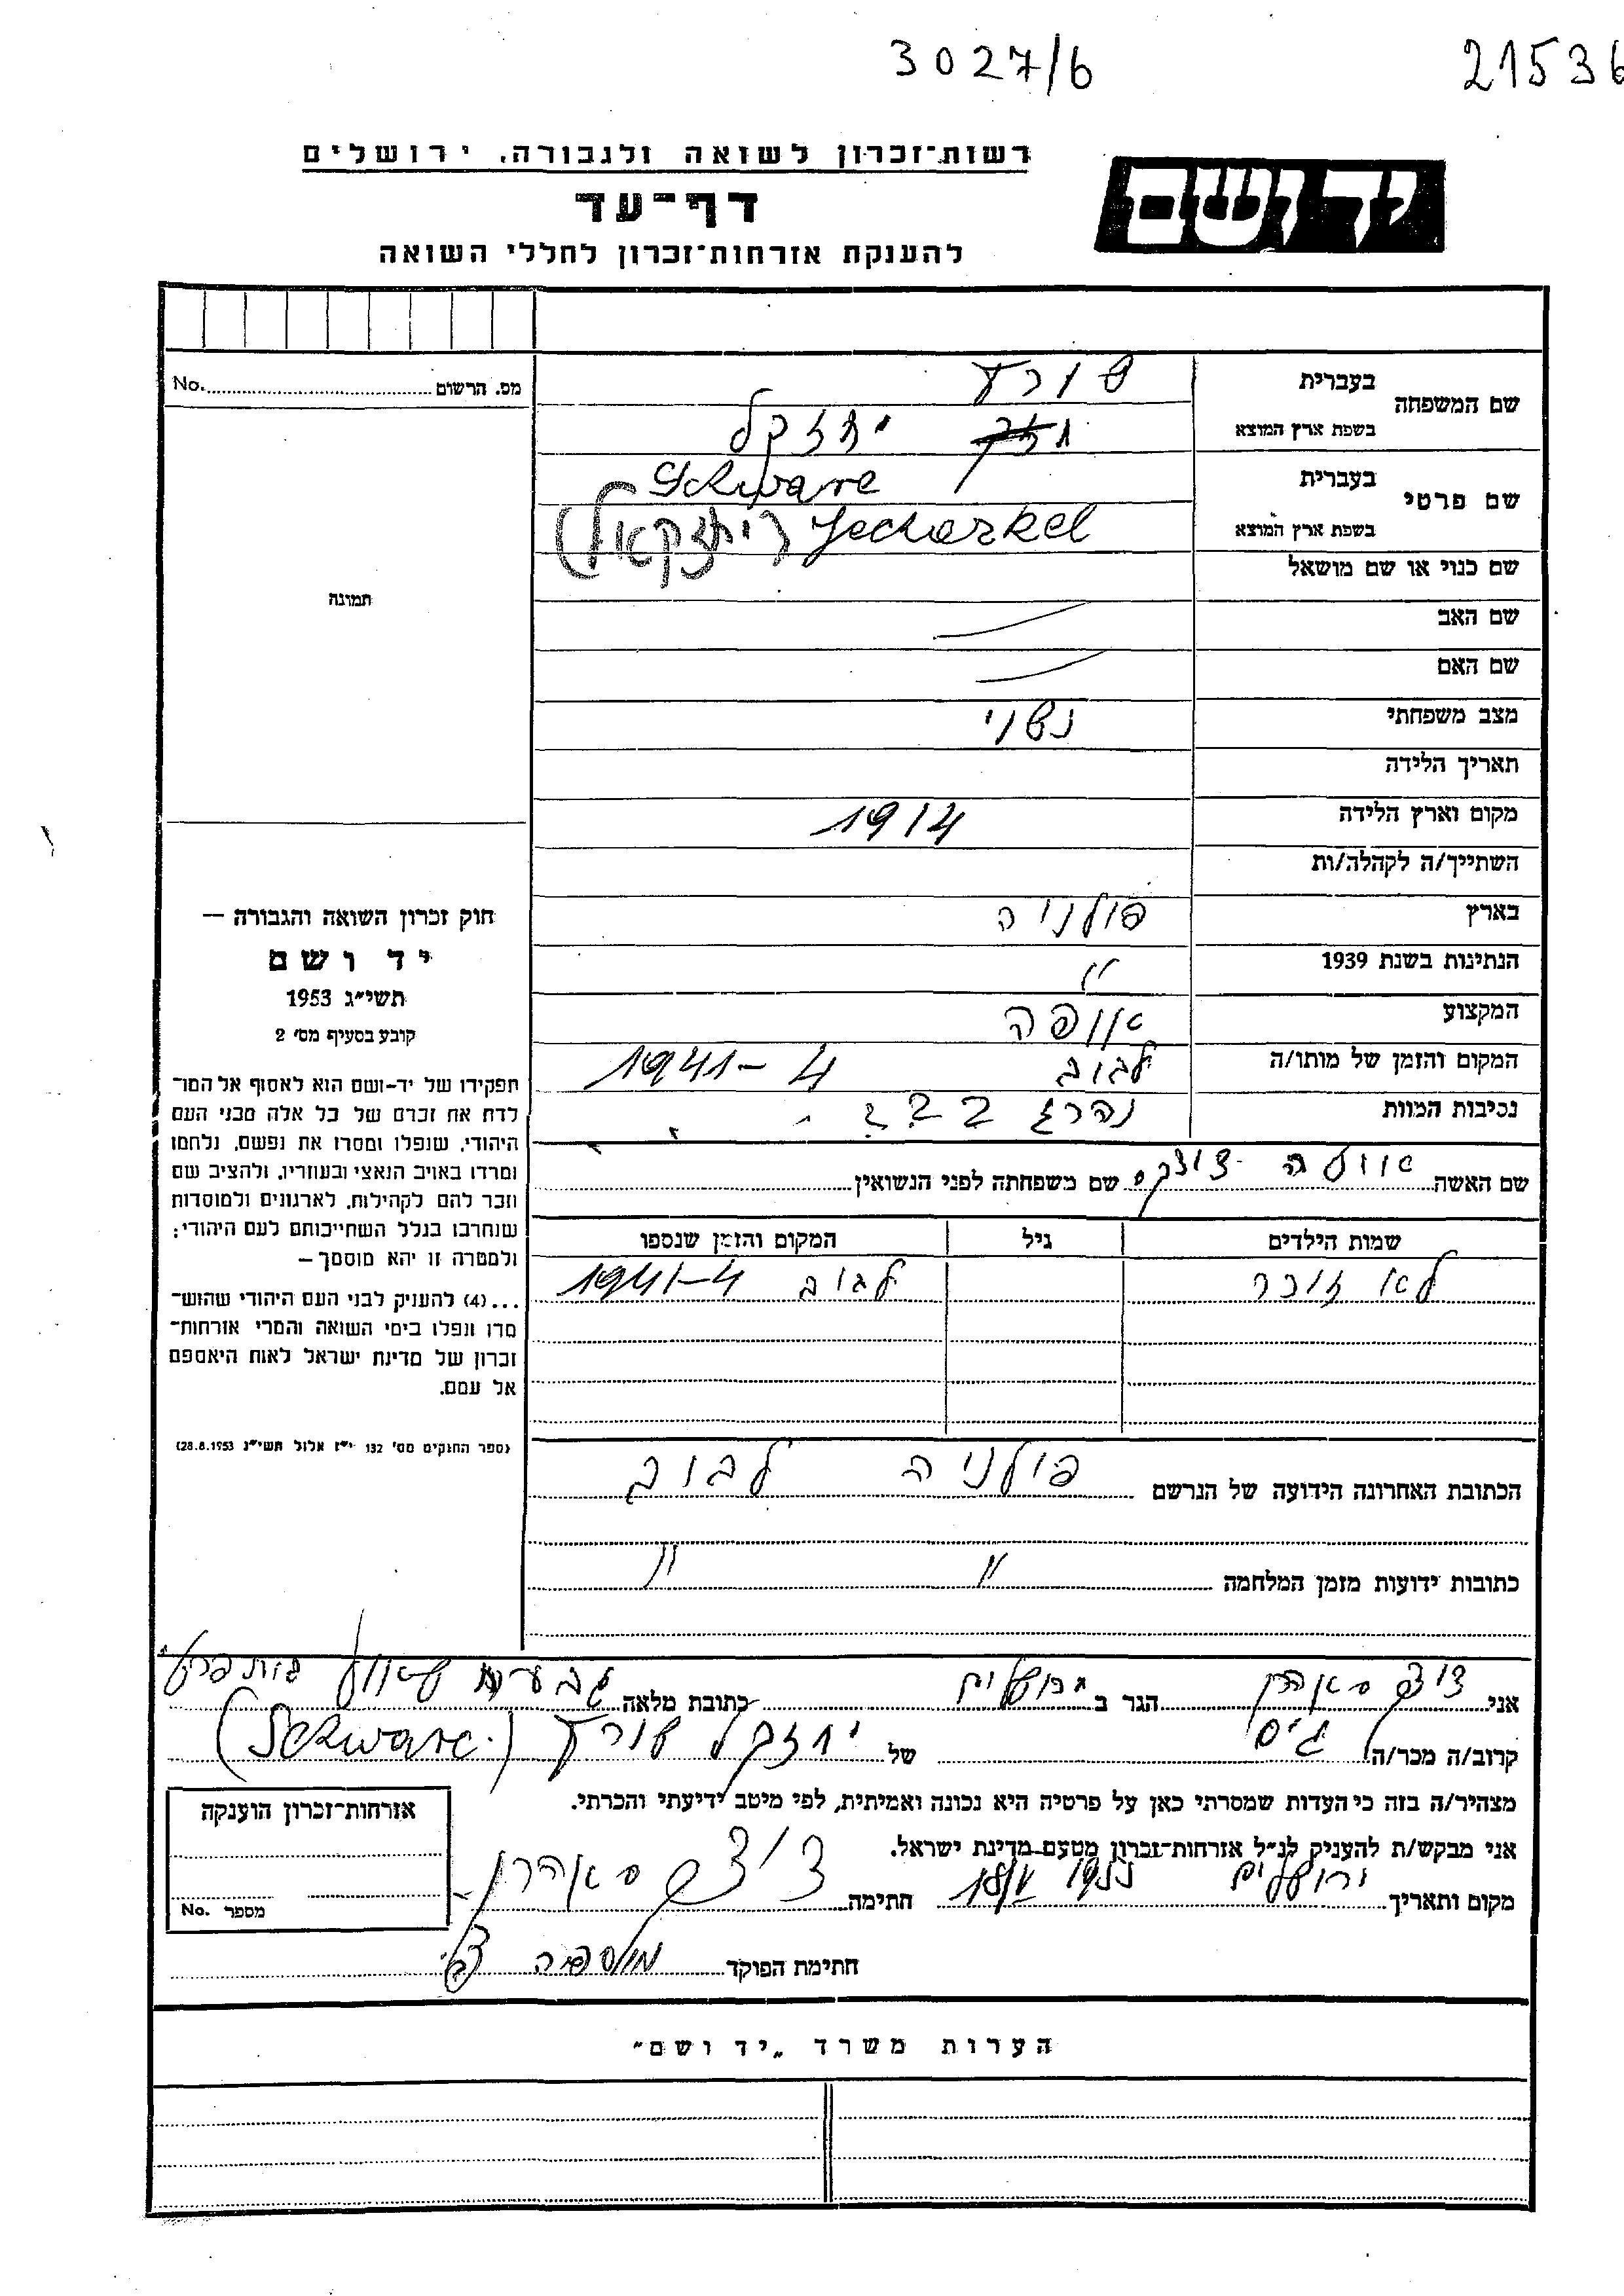 3027/6
21536
רשות־זכרון לשואה ולגבורה, ירושלים
יד ושם
דף־עד
להענקת אזרחות־זכרון לחללי השואה
מס. הרשום No.
תמונה
שם המשפחה בעברית שורץ
בשפת ארץ המוצא יחזקל
שם פרטי בעברית Schwarc
בשפת ארץ המוצא Jecharkel (יחזקאל)
שם כנוי או שם מושאל
שם האב
שם האם
מצב משפחתי נשוי
תאריך הלידה
מקום וארץ הלידה 1914
השתייך/ה לקהלה/ות
בארץ פולניה
הנתינות בשנת 1939 "
המקצוע אופה
המקום והזמן של מותו/ה לבוב 1941-4
נסיבות המוות נהרג
שם האשה שם משפחתה לפני הנשואין
שמות הילדים גיל המקום והזמן שנספו
לא זוכר לבוב 1941-4
הכתובת האחרונה הידועה של הנרשם פולניה לבוב
כתובות ידועות מזמן המלחמה " "
חוק זכרון השואה והגבורה —
יד ושם
תשי״ג 1953
קובע בסעיף מס׳ 2
תפקידו של יד-ושם הוא לאסוף אל המו־
לדת את זכרם של כל אלה מבני העם
היהודי, שנפלו ומסרו את נפשם, נלחמו
ומרדו באויב הנאצי ובעוזריו, ולהציב שם
וזכר להם לקהילות, לארגונים ולמוסדות
שנחרבו בגלל השתייכותם לעם היהודי;
ולמטרה זו יהא מוסמך —
...(4) להענק לבני העם היהודי שהוש־
מדו ונפלו בימי השואה והמרי אזרחות־
זכרון של מדינת ישראל לאות היאספם
אל עמם.
(ספר החוקים מס׳ 132 י״ז אלול תשי״ג 28.8.1953)
אני הגר ב ירושלים כתובת מלאה
קרוב/ה מכר/ה גיס של יחזקל שורץ (Schwarc)
מצהיר/ה בזה כי העדות שמסרתי כאן על פרטיה היא נכונה ואמיתית, לפי מיטב ידיעתי והכרתי.
אני מבקש/ת להעניק לנ״ל אזרחות־זכרון מטעם מדינת ישראל.
מקום ותאריך ירושלים חתימה
חתימת הפוקד
אזרחות־זכרון הוענקה
מספר No.
הערות משרד „יד ושם״